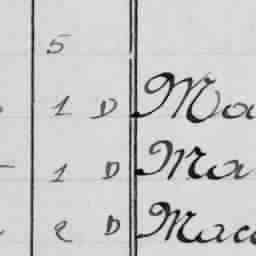 5
1 D Ma
1 D Ma
2 D Mac